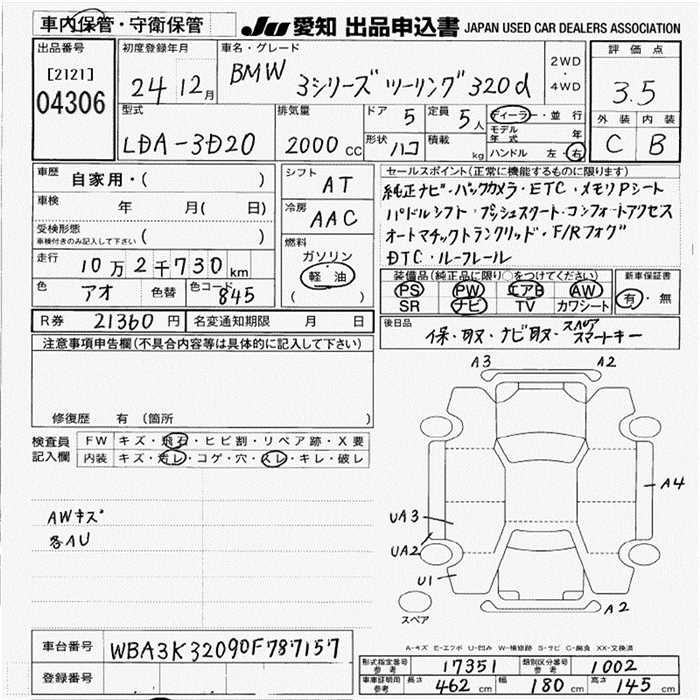 車内保管・守衛保管
JU 愛知 出品申込書 JAPAN USED CAR DEALERS ASSOCIATION
出品番号
[2121]
04306
初度登録年月
24 12月
車名・グレード
BMW 3シリーズ ツーリング 320d
2WD
・
4WD
評価点
3.5
外装 内装
C B
型式
LDA-3D20
排気量
2000 cc
ドア 5
定員 5人
形状 ハコ
積載 kg
ディーラー・並行
モデル年式 年
ハンドル 左・右
車歴 自家用・( )
車検 年 月( 日)
受検形態
車検付きのみ記入して下さい ( )
走行 10万2千730km
色 アオ 色替 色コード 845
シフト AT
冷房 AAC
燃料
ガソリン
軽油
( )
セールスポイント(正常に機能するものに限ります)
純正ナビ・バックカメラ・ETC・メモリPシート
パドルシフト・プッシュスタート・コンフォートアクセス
オートマチックトランクリッド・F/Rフォグ
DTC・ルーフレール
装備品(純正品に限り○をつけてください)
PS PW エアB AW
SR ナビ TV カワシート
新車保証書
有・無
R券 21360円 名変通知期限 月 日
後日品 保・取・ナビ取・スペアスマートキー
注意事項申告欄(不具合内容等は具体的に記入して下さい)
修復歴 有 (箇所 )
検査員記入欄
FW キズ・飛石・ヒビ割・リペア跡・X要
内装 キズ・汚レ・コゲ・穴・スレ・キレ・破レ
AWキズ
各AU
A3 A2
A4
UA3
UA2
U1
A2
スペア
A-キズ E-エクボ U-凹み W-補修跡 S-サビ C-腐食 XX-交換済
車台番号 WBA3K32090F787157
登録番号
形式指定番号 参考 17351 類別区分番号 参考 1002
車庫証明用 参考 長さ 462 cm 幅 180 cm 高さ 145 cm